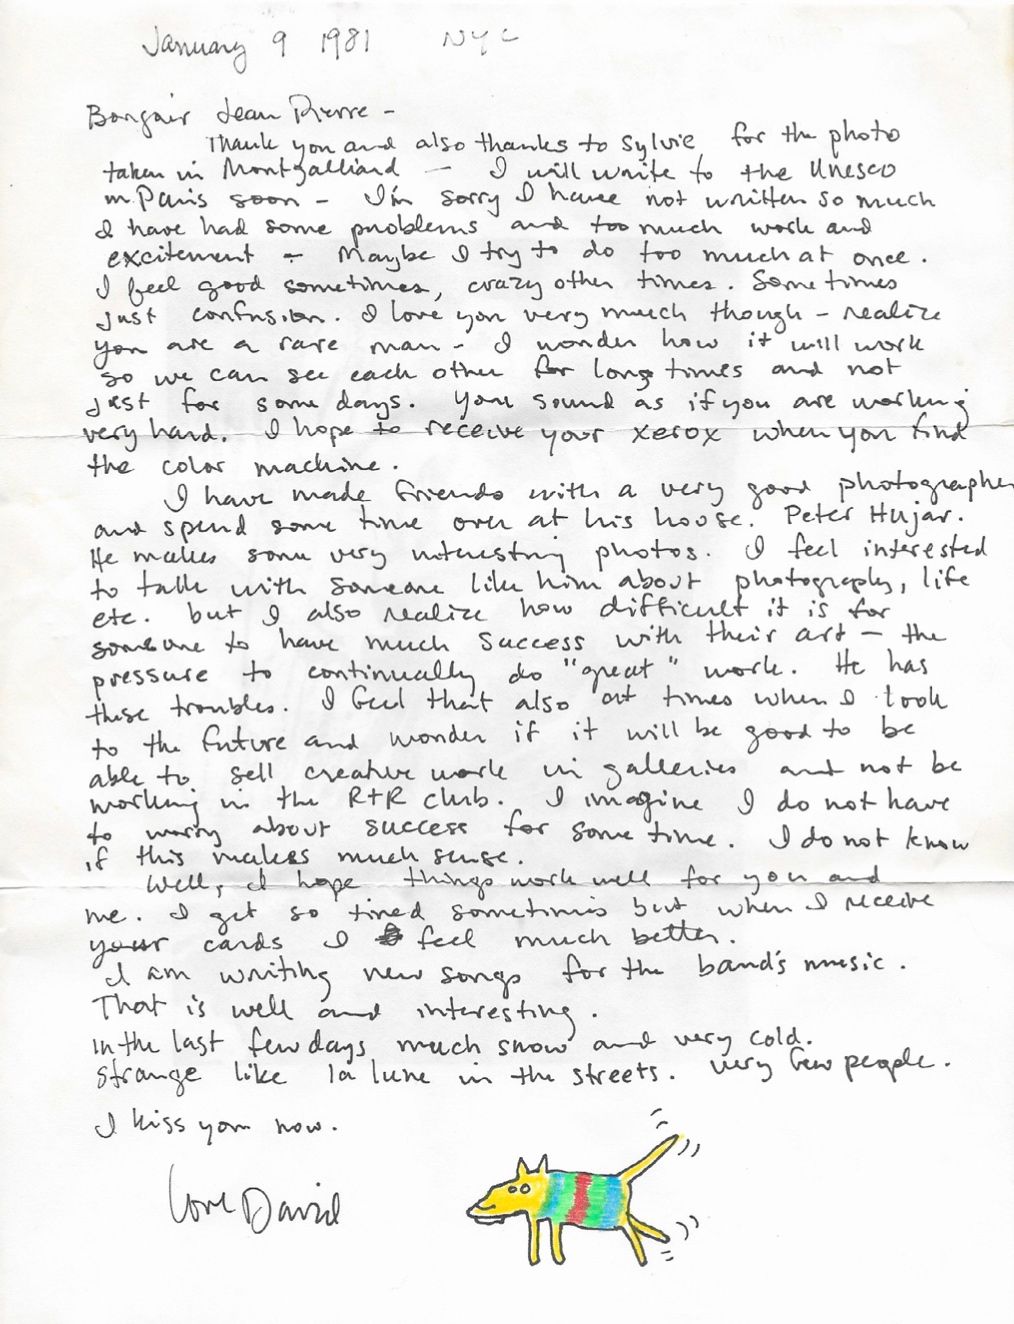 January 9 1981 NYC
Bonjoir Jean Pierre -
Thank you and also thanks to Sylvie for the photo
taken in Montgalliard - I will write to the Unesco
in Paris soon - I'm sorry I have not written so much
I have had some problems and too much work and
excitement - Maybe I try to do too much at once.
I feel good sometimes, crazy other times. Sometimes
just confusion. I love you very much though - realize
you are a rare man - I wonder how it will work
so we can see each other for long times and not
just for some days. You sound as if you are working
very hard. I hope to receive your xerox when you find
the color machine.
I have made friends with a very good photographer
and spend some time over at his house. Peter Hujar.
He makes some very interesting photos. I feel interested
to talk with someone like him about photography, life
etc. but I also realize how difficult it is for
someone to have much success with their art - the
pressure to continually do "great" work. He has
these troubles. I feel that also at times when I look
to the future and wonder if it will be good to be
able to sell creative work in galleries and not be
working in the R+R club. I imagine I do not have
to worry about success for some time. I do not know
if this makes much sense.
Well, I hope things work well for you and
me. I get so tired sometimes but when I receive
your cards I feel much better.
I am writing new songs for the band's music.
That is well and interesting.
In the last few days much snow and very cold.
Strange like la lune in the streets. Very few people.
I kiss you now.
Love David